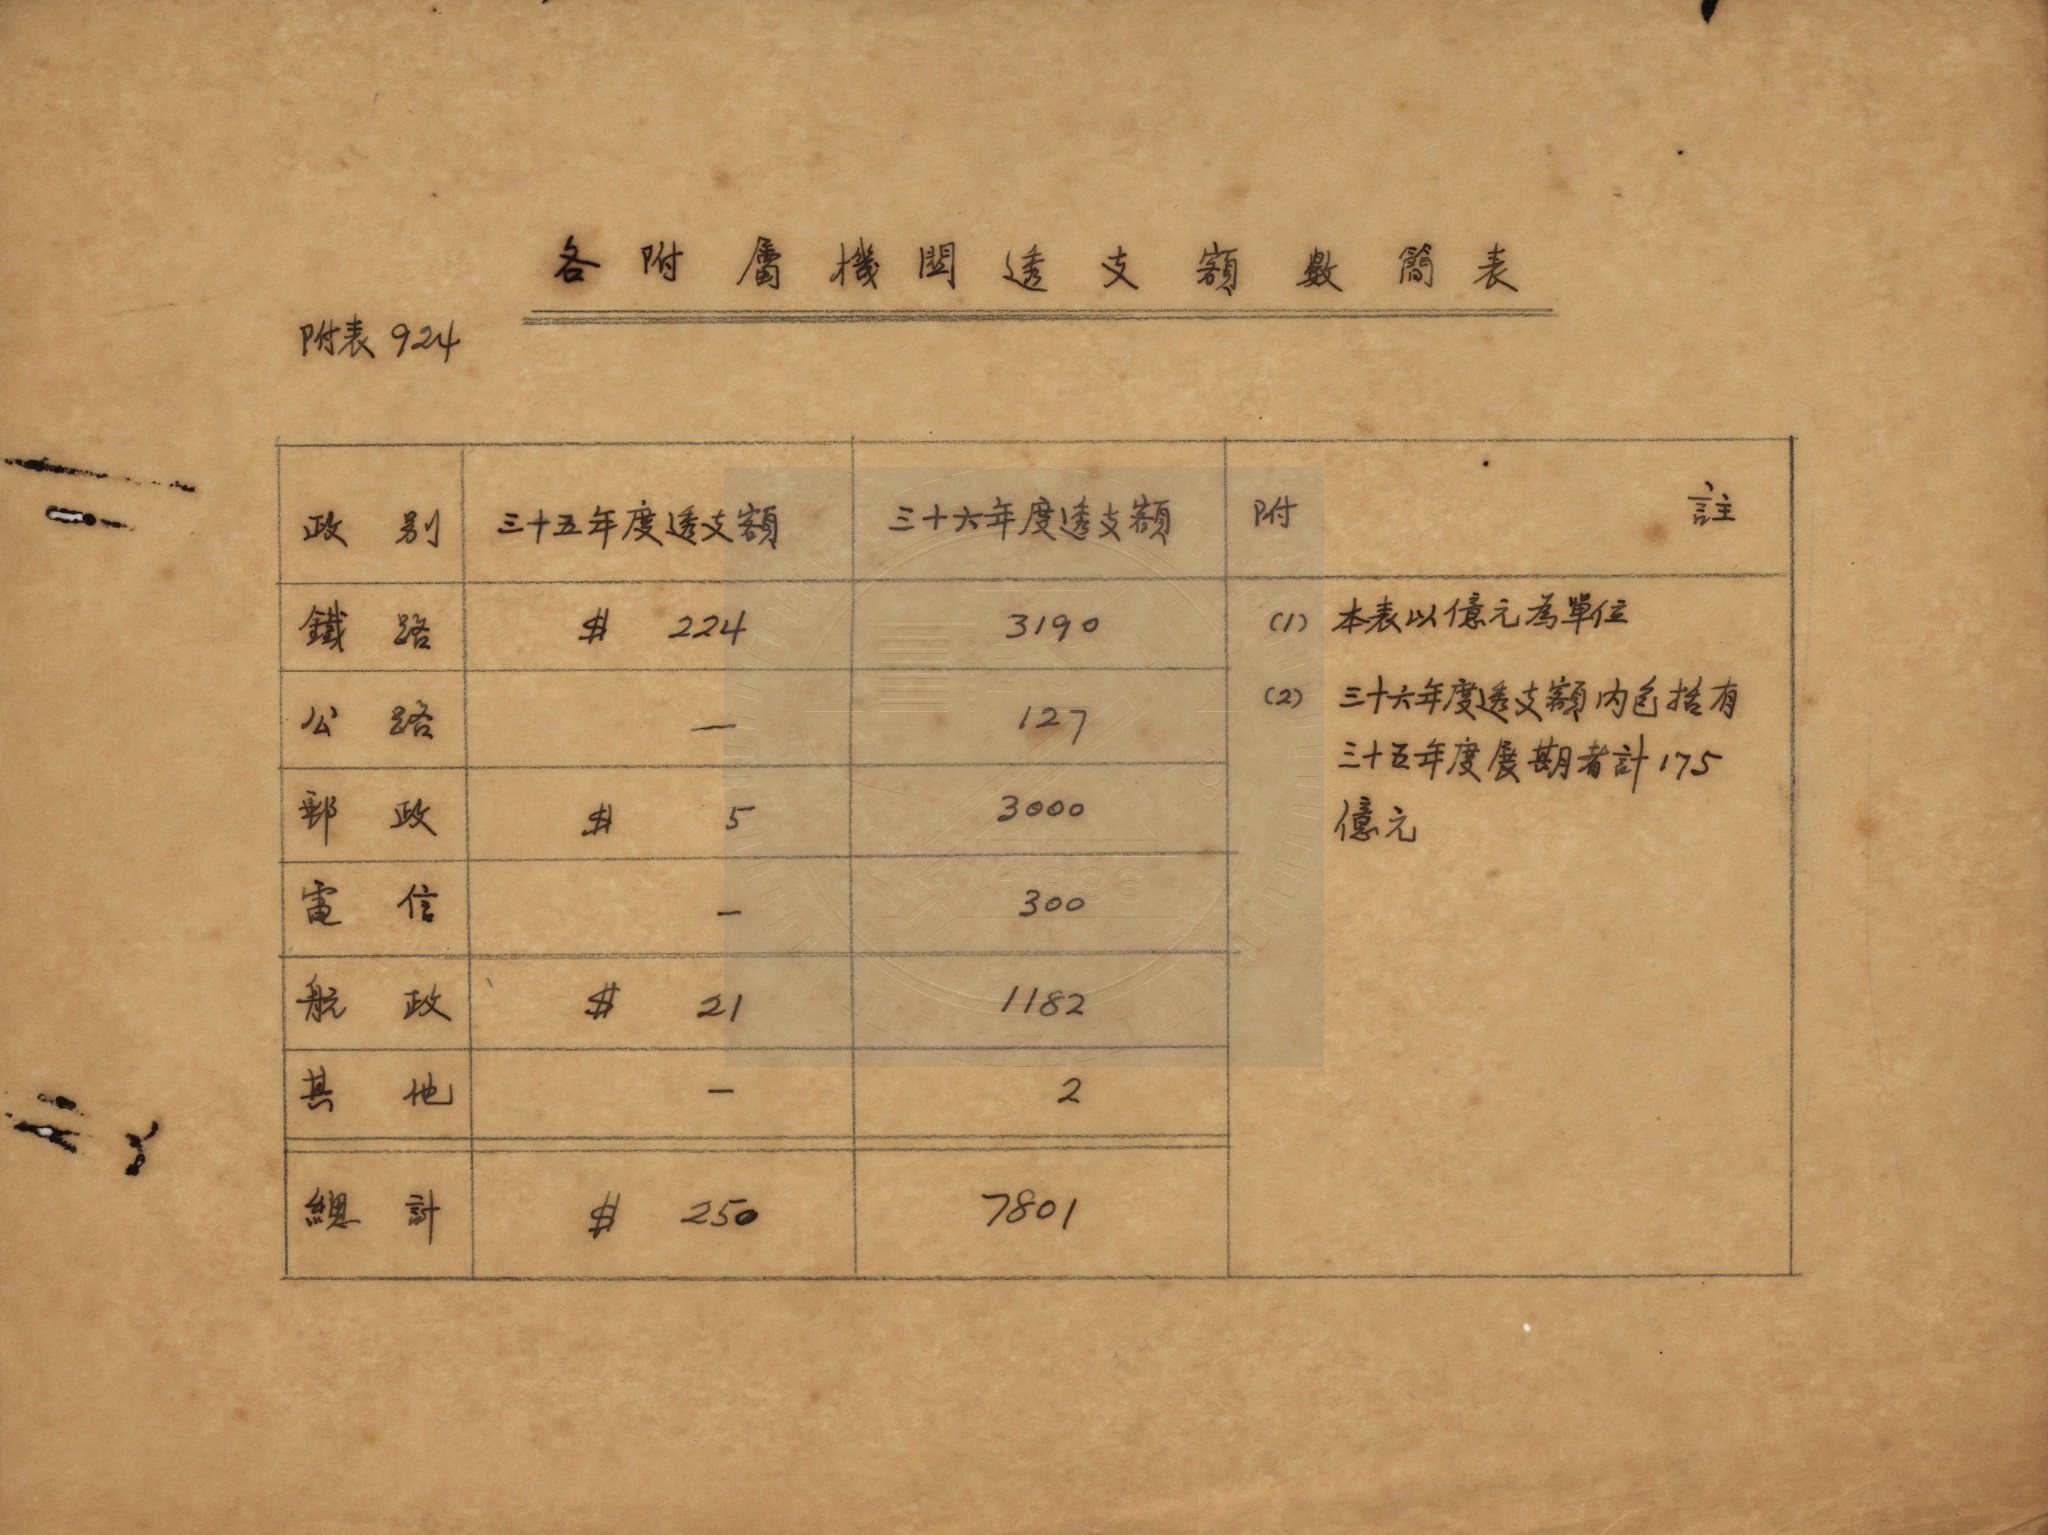 各附屬機關透支額數簡表
附表 924
政別 三十五年度透支額 三十六年度透支額 附註
鐵路 $ 224 3190
公路 — 127
郵政 $ 5 3000
電信 — 300
航政 $ 21 1182
其他 — 2
總計 $ 250 7801
(1) 本表以億元為單位
(2) 三十六年度透支額內包括有
三十五年度展期者計 175
億元